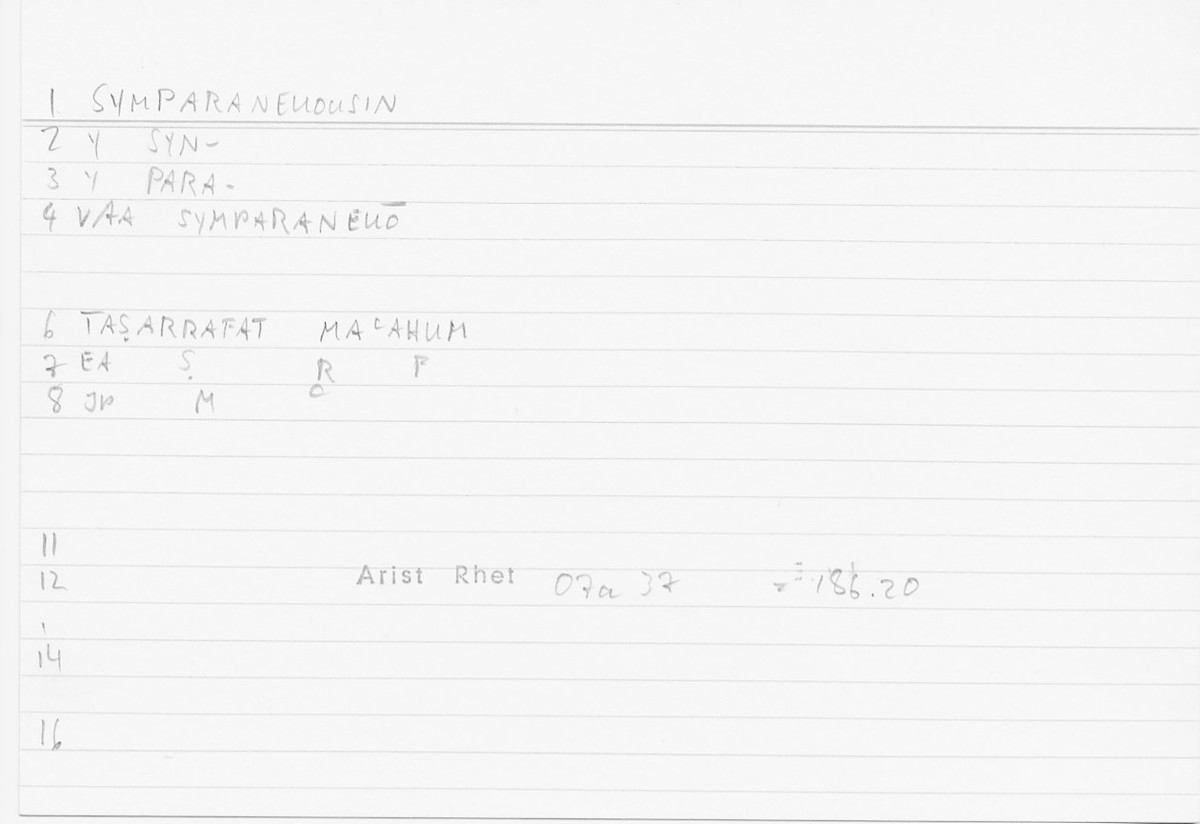 1 SYMPARANEUOUSIN
2 Y SYN-
3 Y PARA-
4 VAA SYMPARANEUŌ
6 TAṢARRAFAT MAʿAHUM
7 EA Ṣ R F
8 JP M
11
12 Arist Rhet 07a 37 186.20
14
16